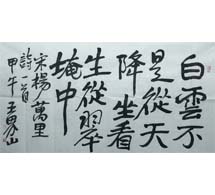 白雲不
是從天
降坐看
生從翠
崦中
宋楊萬里
詩一首
甲午王界山